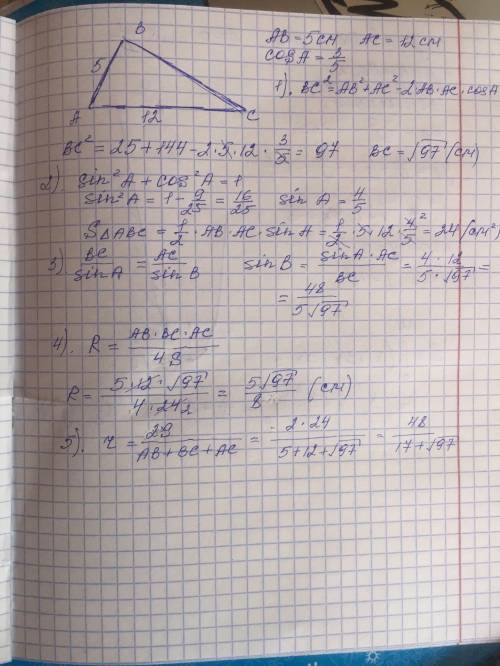 B
AB = 5 см   AC = 12 см
cos A = 3/5
5
A   12   C
1). BC² = AB² + AC² - 2AB·AC·cos A
BC² = 25 + 144 - 2·5·12 · 3/5 = 97   BC = √97 (см)
2) sin²A + cos²A = 1
sin²A = 1 - 9/25 = 16/25   sin A = 4/5
S△ABC = 1/2 · AB·AC·sin A = 1/2 · 5·12 · 4/5 = 24 (см²)
3) BC/sin A = AC/sin B   sin B = sin A · AC/BC = 4·12/5·√97 =
= 48/5√97
4). R = AB·BC·AC/4S
R = 5·12·√97/4·24 2 = 5√97/8 (см)
5). r = 2S/AB+BC+AC = 2·24/5+12+√97 = 48/17+√97